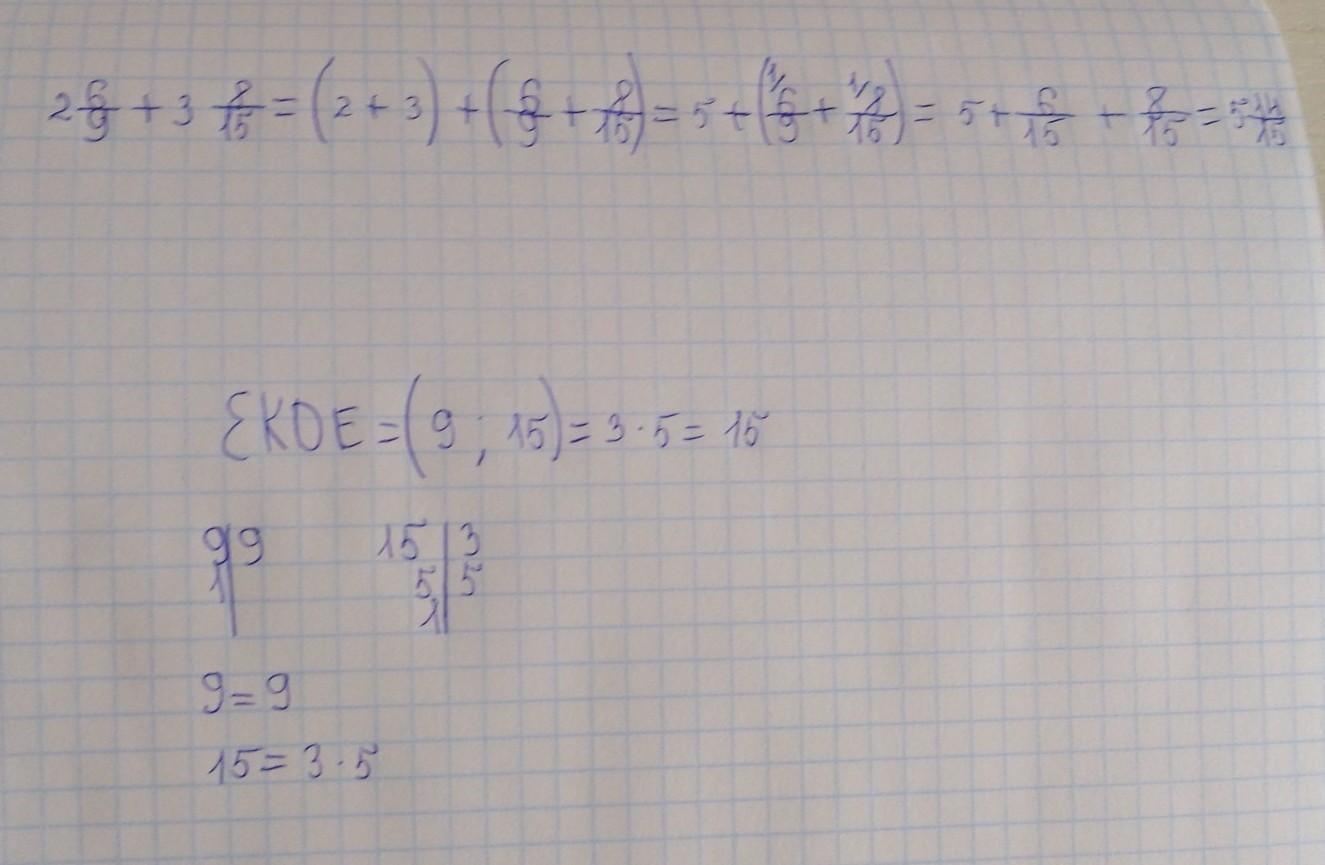 2 6/9 + 3 8/15 = (2 + 3) + (6/9 + 8/15) = 5 + (1/ 6/9 + 1/ 8/15) = 5 + 6/15 + 8/15 = 5 14/15
ЕКОЕ = (9 ; 15) = 3 · 5 = 15
9|9 15|3
1| 5|5
1|
9 = 9
15 = 3 · 5